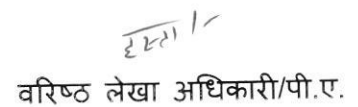 हस्ता/-
वरिष्ठ लेखा अधिकारी/पी.ए.